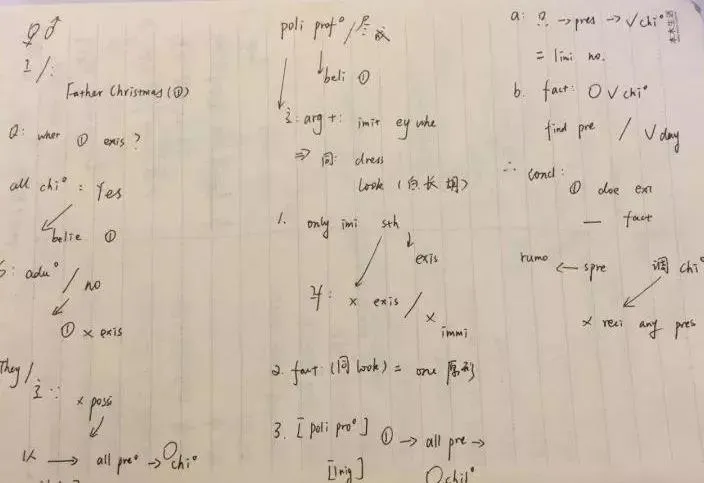 ♀♂
主/:
Father Christmas (①)
Q: wher ① exis?
all chi°: Yes
↙
belie ①
: adu° / no
↙
① × exis
They /
主 ∵ × possi
↘
1人 → all pre° → ○ chi°
poli prof° /
↓ ↓
beli ①
主: arg+: imit ey whe
⇒ 同: dress
look (白长胡)
1. only imi sth
↙ ↓
exis
× exis / × immi
2. fact: (同 look) = one 原形
3. [poli pro°] ① → all pre →
○ chil°
a: → pres → √ chi°
= limi no.
b. fact: ○ √ chi°
find pre / √ day
∴ concl:
① doe exi
— fact
rumo ← spre 调 chi°
↙
× reci any pres